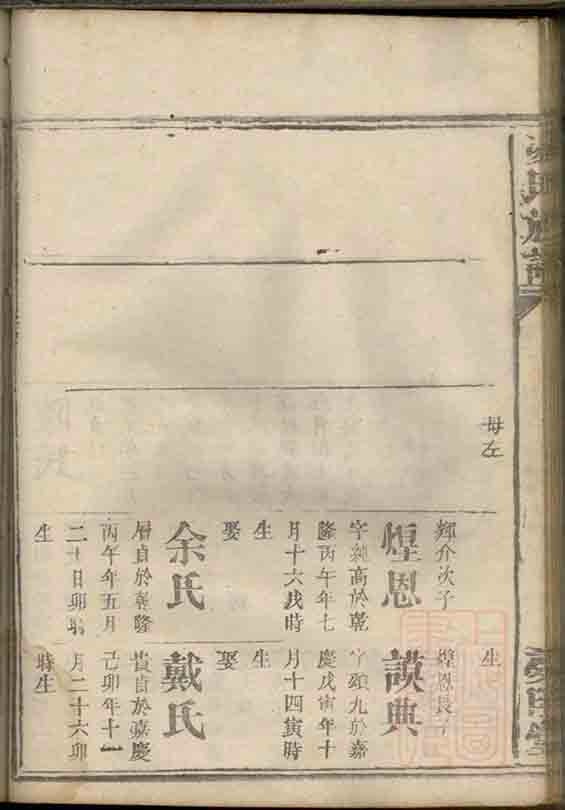 氏族譜
母左
輝介次子
煌恩
高於乾
隆丙午年七
月十六戌時
生
娶
余氏
居貞於乾隆
丙午年五月
二十日卯時
生
生
煌恩長子
謨典
字顯九於嘉
慶戊寅年十
月十四寅時
生
娶
戴氏
貴貞於嘉慶
己卯年十一
月二十六卯
時生